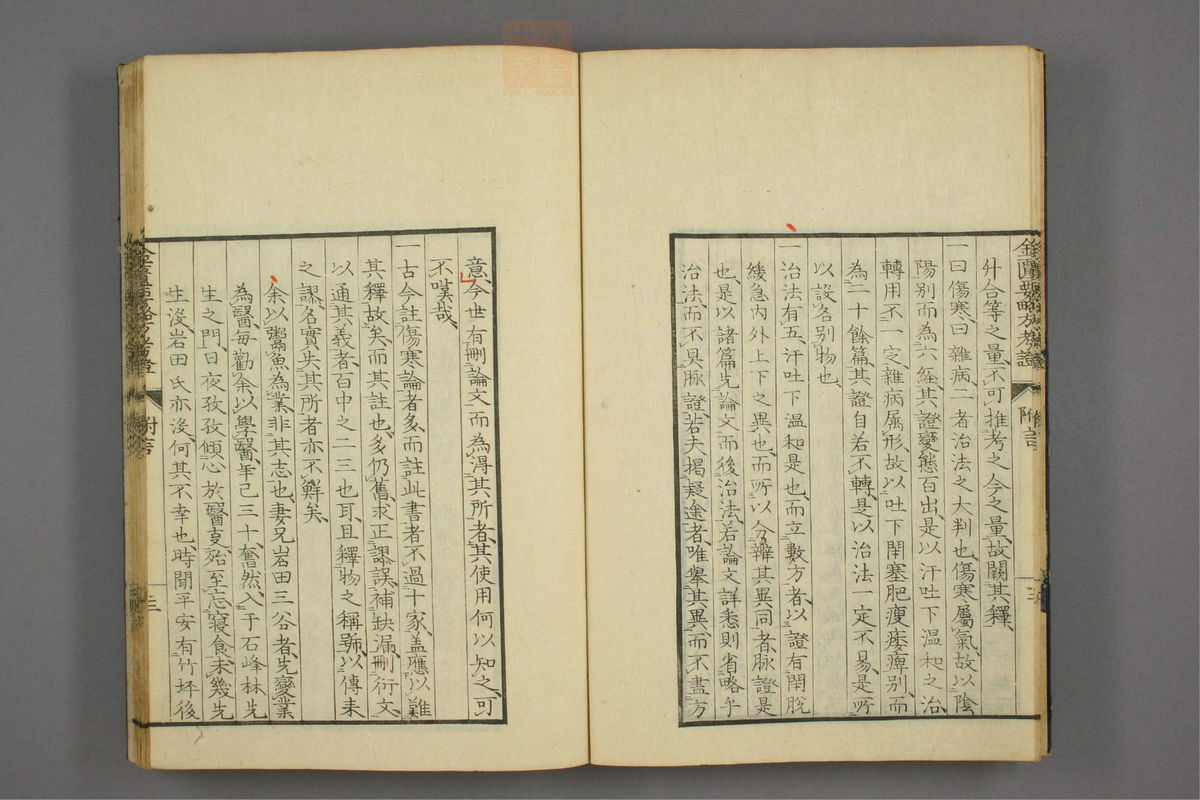 金匱要略方考證 附言
升合等之量、不可推考之、今之量、故闕其釋、
一曰傷寒、曰雜病、二者治法之大判也、傷寒屬氣、故以陰
陽別而為六經、其證變態百出、是以汗吐下温和之治
轉用不一定、雜病属形、故以吐下閉塞肥瘦痿痺別、而
為二十餘篇、其證自若不轉、是以治法一定不易、是所
以設各別物也、
一治法有五、汗吐下温和是也、而立數方者、以證有閉脫
緩急内外上下之異也、而所以分辨其異同者、脉證是
也、是以諸篇先論文而後治法、若論文詳悉則省略乎
治法而不具脉證、若夫揭疑途者、唯舉其異而不盡方
意、今世有刪論文而為得其所者、其使用何以知之、可
不嘆哉、
一古今註傷寒論者多、而註此書者不過十家、盖應以難
其釋故矣、而其註也、多仍舊求正謬誤、補缺漏、刪衍文、
以通其義者、百中之二三也耳、且釋物之稱號、以傳來
之謬名實失其所者亦不鮮矣、
余以鬻魚為業、非其志也、妻兄岩田三谷者、先變業
為醫、每勸余以學醫、年已三十、奮然入于石峰林先
生之門、日夜孜孜傾心於醫叓、殆至忘寢食、未幾先
生沒、岩田氏亦沒、何其不幸也、時聞平安有竹坪後
金匱要略方考證 附言 三